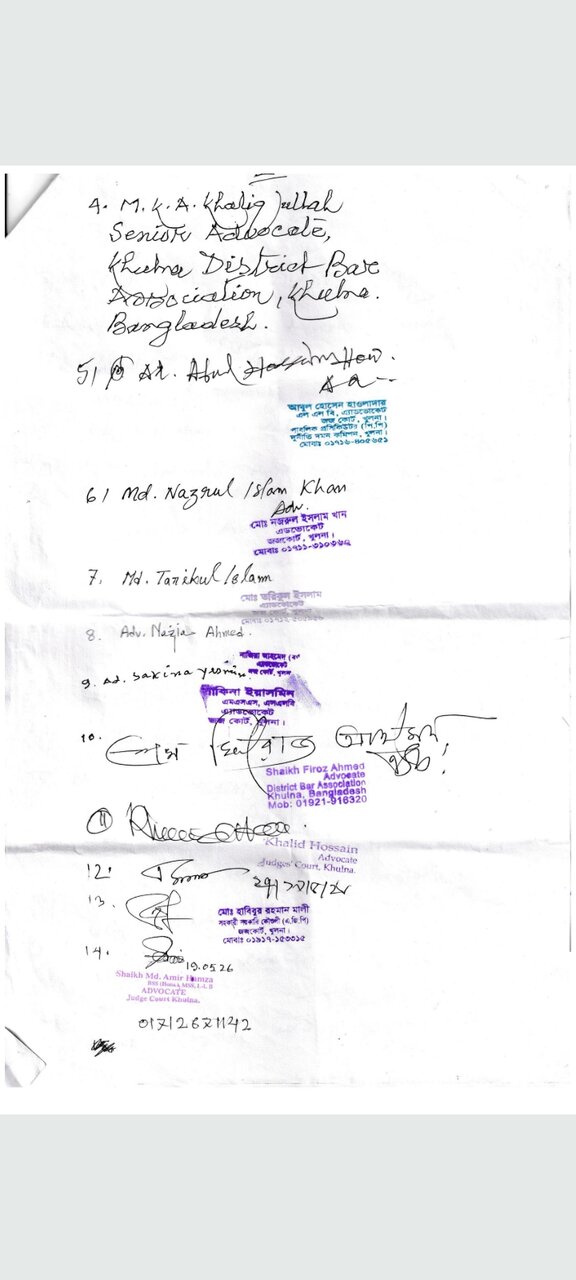 4. M. K. A. Khaliq
Senior Advocate,
Khulna District Bar
Association, Khulna.
Bangladesh.
5/
আবুল হোসেন হাওলাদার
এল এল বি, এ্যাডভোকেট
জজ কোর্ট, খুলনা।
পাবলিক প্রসিকিউটর (পি,পি)
দুর্নীতি দমন কমিশন, খুলনা।
মোবাঃ ০১৭১৬-৪০৫৬৫১
6/ Md. Nazrul Islam Khan
Adv.
মোঃ নজরুল ইসলাম খান
এডভোকেট
জজকোর্ট, খুলনা।
7. Md. Tarikul Islam
মোঃ তরিকুল ইসলাম
এ্যাডভোকেট
8. Adv. Nazia Ahmed.
নাজিয়া আহমেদ
এ্যাডভোকেট
জজ কোর্ট, খুলনা
9. Ad. Sakina Yesmin
সাকিনা ইয়াসমিন
এমএসএস, এলএলবি
এ্যাডভোকেট
জজ কোর্ট, খুলনা।
10.
Shaikh Firoz Ahmed
Advocate
District Bar Association
Khulna, Bangladesh
Mob: 01921-916320
11
Khalid Hossain
Advocate
Judges' Court, Khulna.
12.
13.
মোঃ হাবিবুর রহমান মালী
সহকারী সরকারি কৌশলী (এ.জি.পি)
জজকোর্ট, খুলনা।
মোবাঃ ০১৯১৭-১৫৩৩১৫
14.
19.05.26
Shaikh Md. Amir Hamza
BSS (Hons.), MSS, L.L.B
ADVOCATE
Judge Court Khulna.